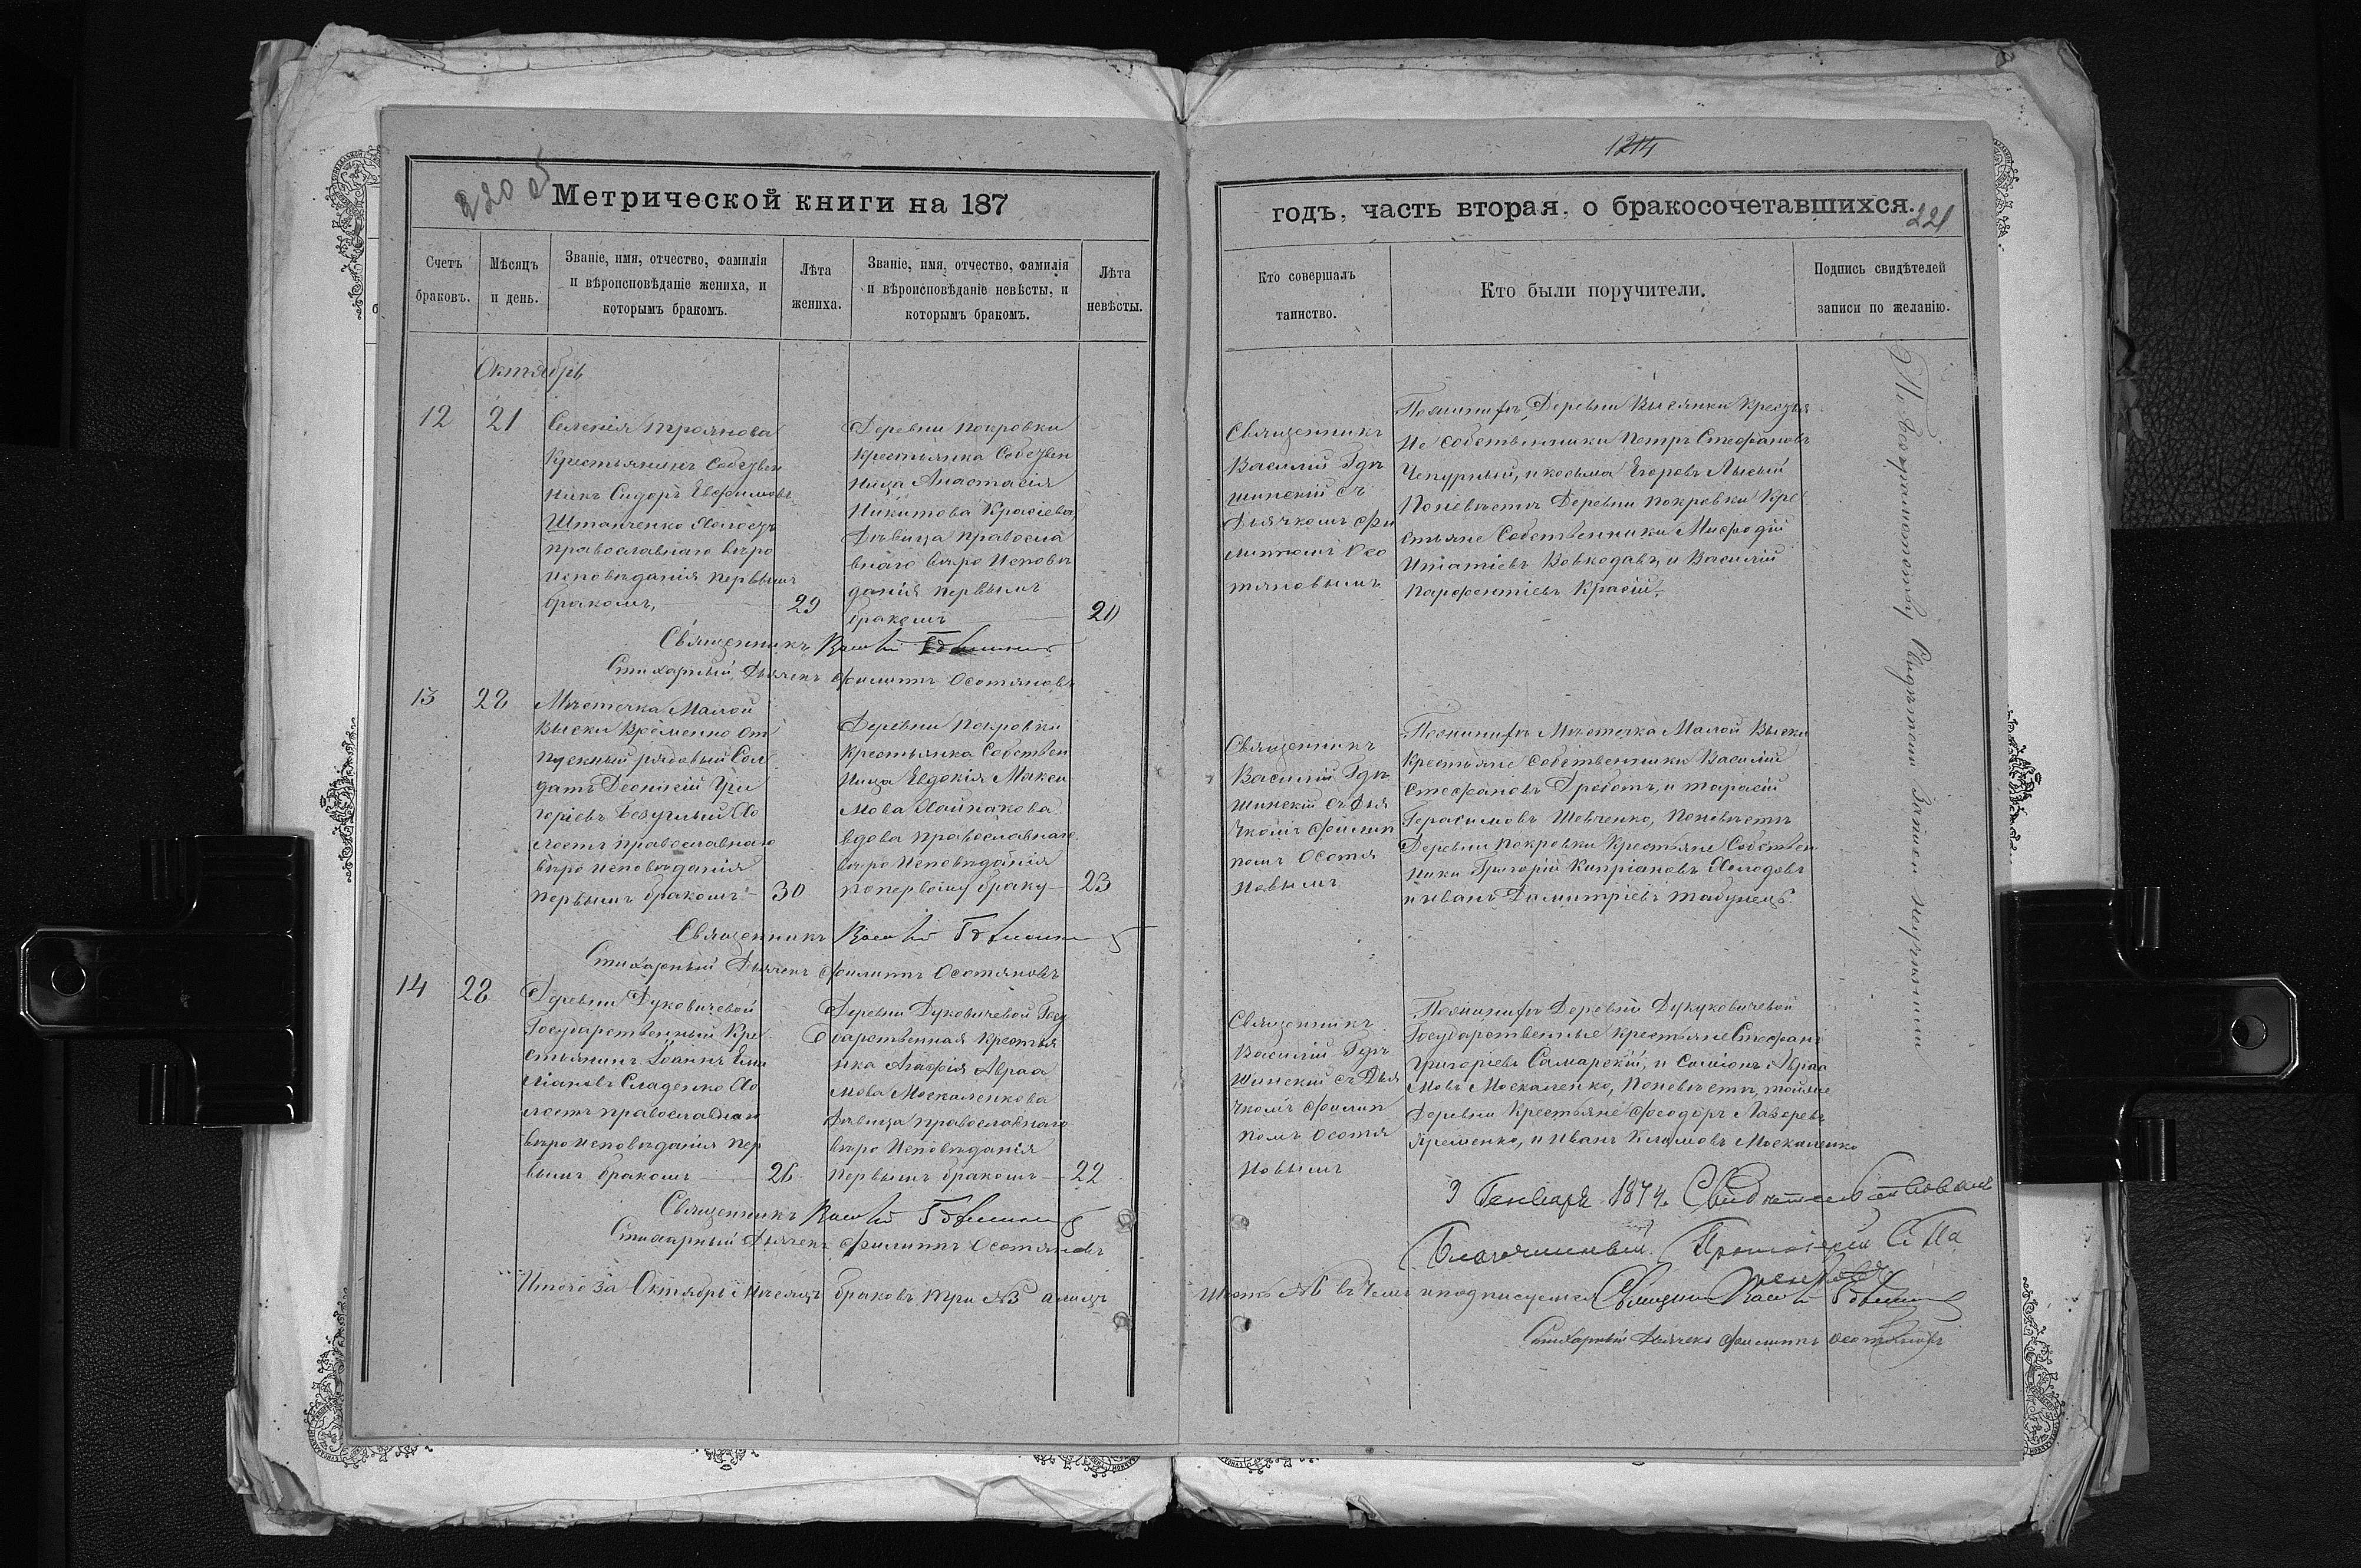 220
Метрической книги на 187
Счетъ
браковъ.
Мѣсяцъ
и день.
Званіе, имя, отчество, фамилія
и вѣроисповѣданіе жениха, и
которымъ бракомъ.
Лѣта
жениха.
Званіе, имя, отчество, фамилія
и вѣроисповѣданіе невѣсты, и
которымъ бракомъ.
Лѣта
невѣсты.
Октябрь
12
21
Селенія Троянова
Крестьянинъ Собствен
никъ Сидоръ Евфимовъ
Штанченко Холостъ
православнаго вѣро
исповѣданія первымъ
бракомъ,
29
Деревни Покровки
Крестьянка Собствен
ница Анастасія
Никитова Красіева
Дѣвица Правосла
внаго вѣро Исповѣ
данія первымъ
бракомъ
20
Священникъ
Стихарный Дьячекъ Филиппъ Осотяновъ
13
28
Мѣстечка Малой
Выски Временно от
пускный рядовый Сол
датъ Леонтій Гри
горіевъ Безуглый Хо
лостъ православнаго
вѣро исповѣданія
первымъ бракомъ
30
Деревни Покровки
Крестьянка Собствен
ница Евдокія Макси
мова
вдова православнаго
вѣро Исповѣданія
по первому браку
23
Священникъ
Стихарный Дьячекъ Филиппъ Осотяновъ
14
28
Деревни Дуковичевой
Государственный Кре
стьянинъ Іоаннъ Еми
ліановъ Сладенко Хо
лостъ православнаго
вѣро исповѣданія пер
вымъ бракомъ
26
Деревни Дуковичевой Госу
дарственная Крестья
нка Агафія Авраа
мова Москаленкова
Дѣвица православнаго
вѣро Исповѣданія
первымъ бракомъ
22
Священникъ
Стихарный Дьячекъ Филиппъ Осотяновъ
Итого за Октябрь Мѣсяцъ браковъ три №3 а лицъ
1214
годъ, часть вторая, о бракосочетавшихся.
221
Кто совершалъ
таинство.
Кто были поручители.
Подпись свидѣтелей
записи по желанію.
Священникъ
Василій Гдѣ
шинскій съ
Дьячкомъ Фи
липпомъ Осо
тяновымъ
По женихѣ Деревни Высянки Крестья
не собственники Петръ Стефановъ
Чепурный, и Косьма Егоровъ Лысый
По невѣстѣ Деревни Покровки Кре
стьяне Собственники Мефодій
Игнатіевъ Вовкодавъ, и Василій
Парфентіевъ Красій.
Священникъ
Василій Гдѣ
шинскій съ Дья
чкомъ Филип
помъ Осотя
новымъ
По женихѣ Мѣстечка Малой Выски
Крестьяне Собственники Василій
Стефановъ Дроботъ, и Тарасій
Герасимовъ Шевченко, По невѣстѣ
Деревни Покровки Крестьяне Собствен
ники Григорій Кипріановъ Холодовъ
и Иванъ Димитріевъ Табунецъ.
Священникъ
Василій Гдѣ
шинскій съ Дья
чкомъ Филип
помъ Осотя
новымъ
По женихѣ Деревни Дукуковичевой
Государственные Крестьяне Стефанъ
Григоріевъ Самарскій, и Симіонъ Авраа
мовъ Москаленко, По невѣстѣ, тойже
Деревни Крестьяне Феодоръ Лазоревъ
Яременко, и Иванъ Климовъ Москаленко
9 Генваря 1874. Свидѣтельствовалъ
Благочинный Протоіерей
шесть №6 въ чемъ и подписуемся Священникъ
Стихарный Дьячекъ Филиппъ Осотяновъ
По безграмотству Свидѣтели Записи